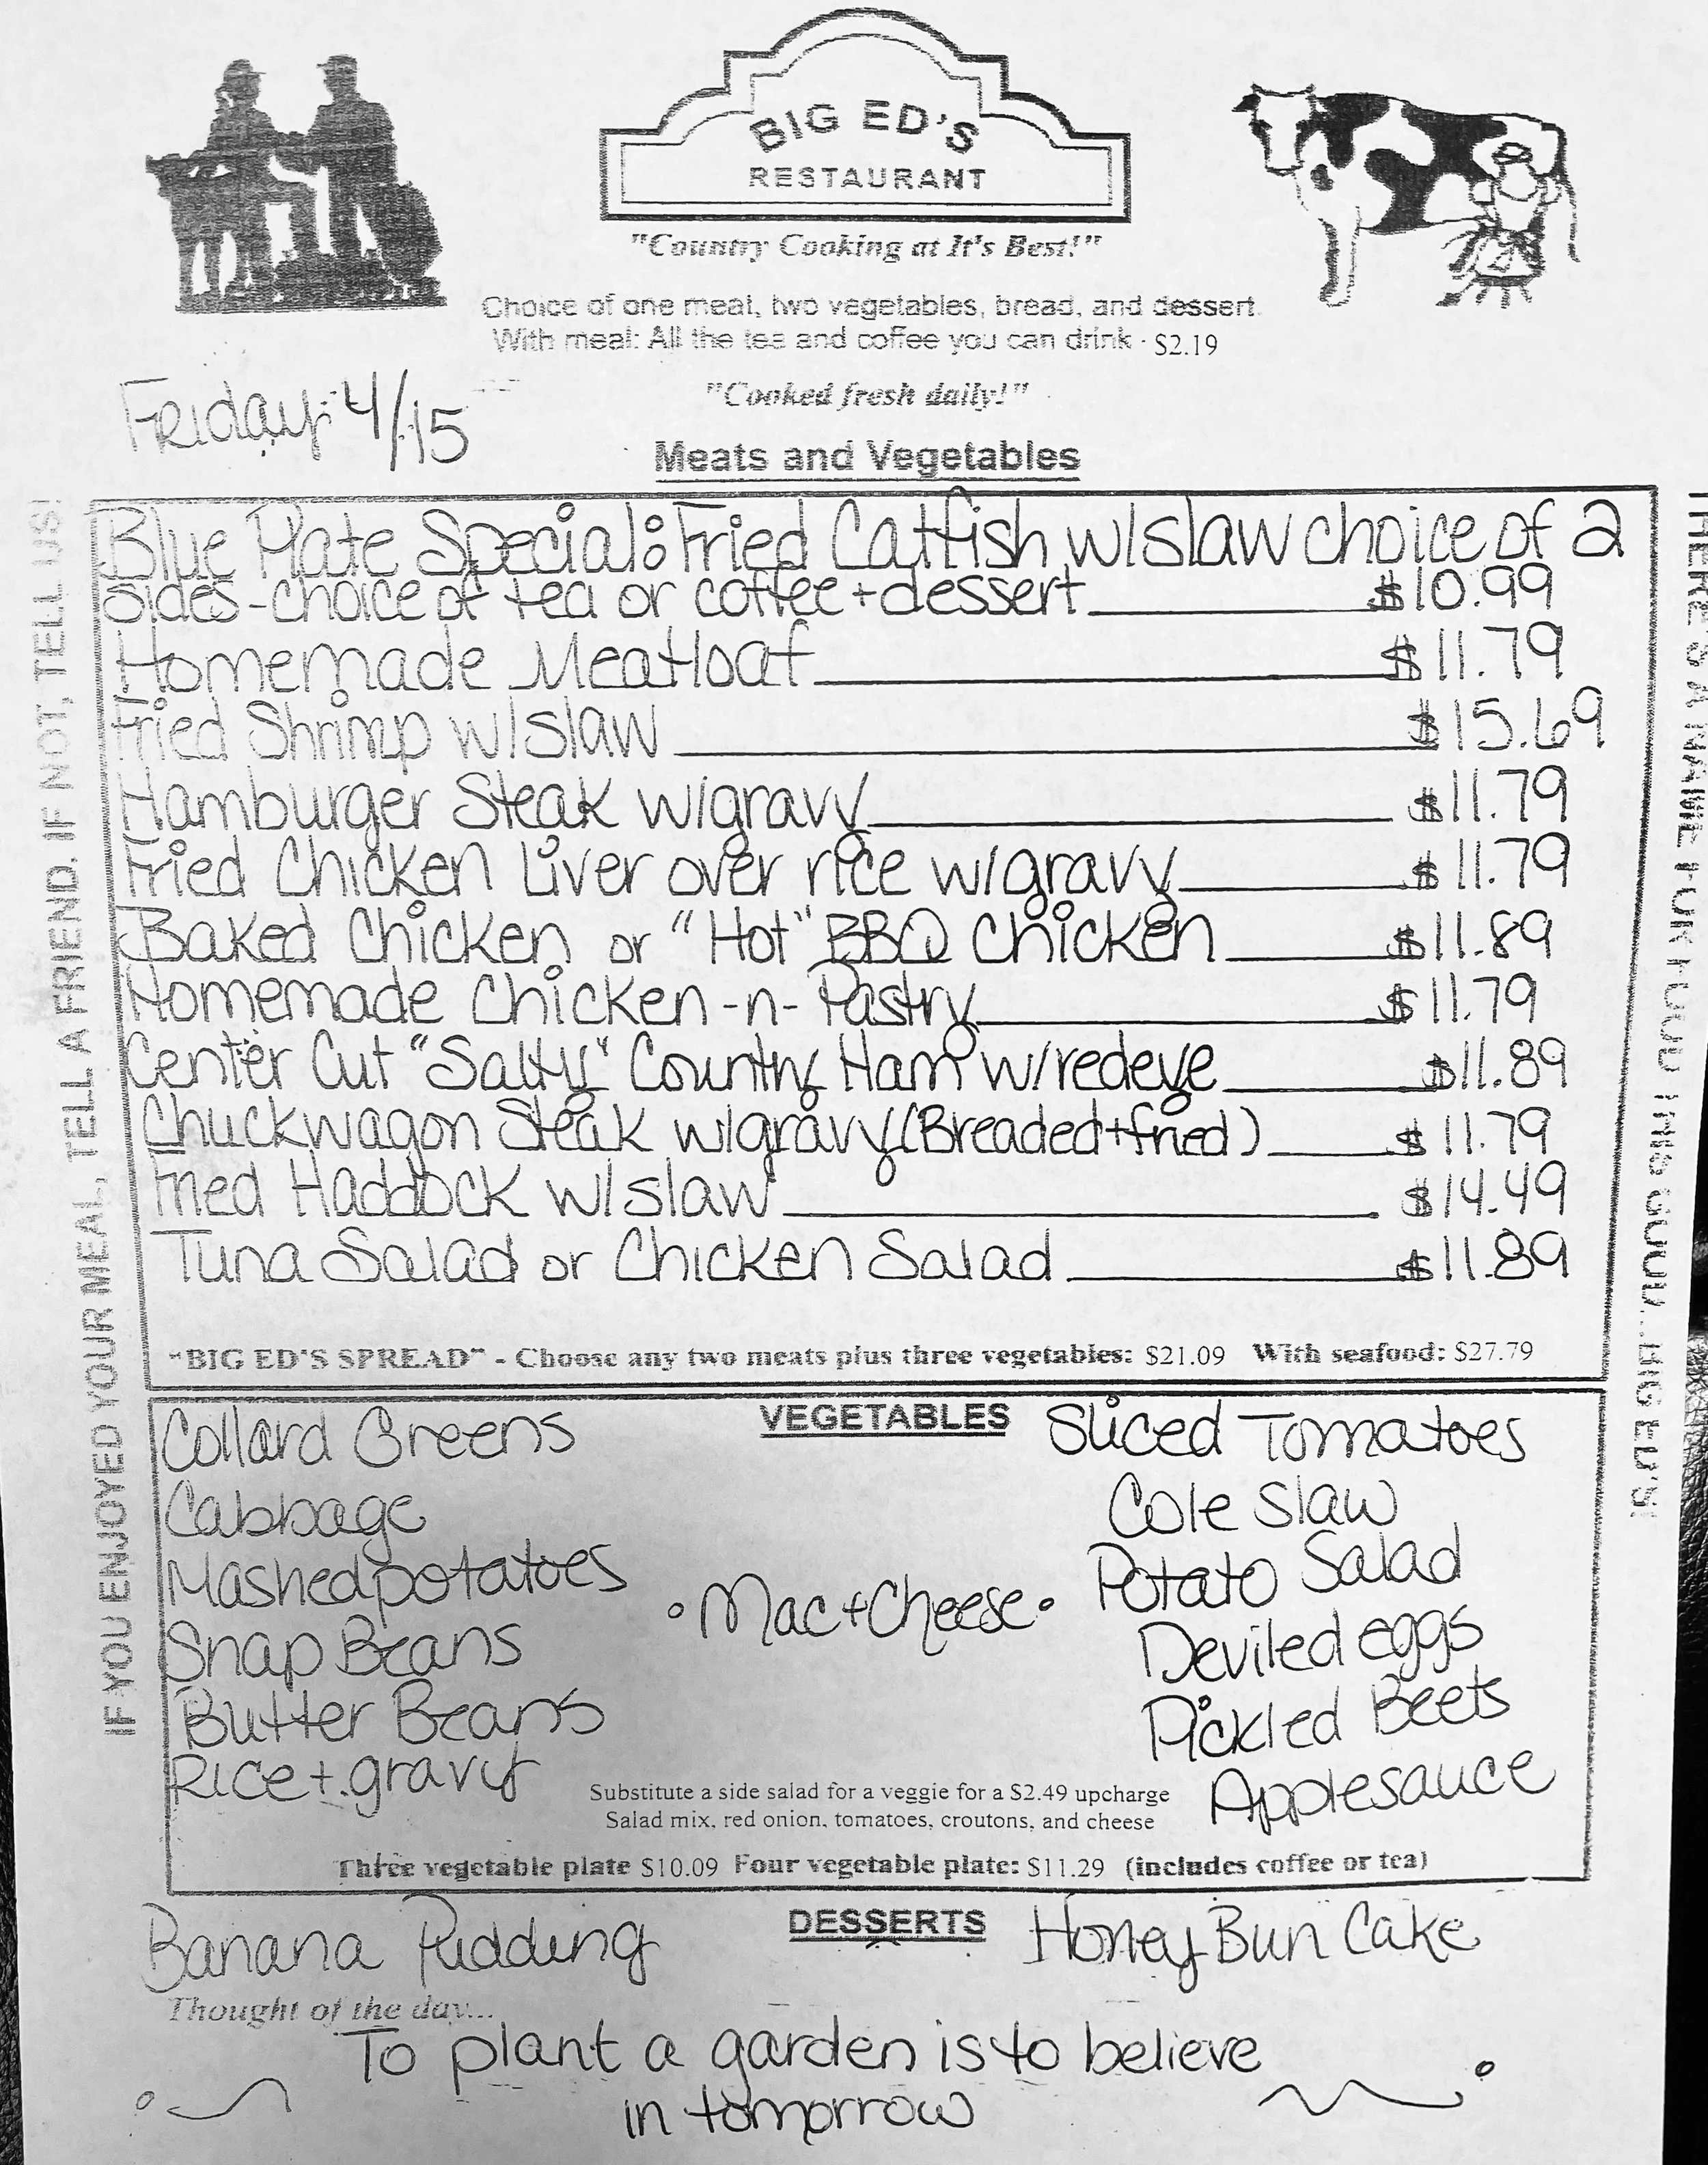 BIG ED'S
RESTAURANT
"Country Cooking at It's Best!"
Choice of one meat, two vegetables, bread, and dessert.
With meal: All the tea and coffee you can drink - $2.19
"Cooked fresh daily!"
Friday: 4/15
Meats and Vegetables
Blue Plate Special: Fried Catfish w/slaw choice of 2
sides - choice of tea or coffee + dessert $10.99
Homemade Meatloaf $11.79
Fried Shrimp w/slaw $15.69
Hamburger Steak w/gravy $11.79
Fried Chicken Liver over rice w/gravy $11.79
Baked Chicken or "Hot" BBQ Chicken $11.89
Homemade Chicken-n-Pastry $11.79
Center Cut "Salty" Country Ham w/redeye $11.89
Chuckwagon Steak w/gravy (Breaded+fried) $11.79
Fried Haddock w/slaw $14.49
Tuna Salad or Chicken Salad $11.89
"BIG ED'S SPREAD" - Choose any two meats plus three vegetables: $21.09 With seafood: $27.79
VEGETABLES
Collard Greens
Cabbage
Mashed potatoes
Snap Beans
Butter Beans
Rice + gravy
• Mac + Cheese •
Sliced Tomatoes
Cole Slaw
Potato Salad
Deviled eggs
Pickled Beets
Applesauce
Substitute a side salad for a veggie for a $2.49 upcharge
Salad mix, red onion, tomatoes, croutons, and cheese
Three vegetable plate $10.09 Four vegetable plate: $11.29 (includes coffee or tea)
DESSERTS
Banana Pudding
Honey Bun Cake
Thought of the day...
To plant a garden is to believe
in tomorrow
IF YOU ENJOYED YOUR MEAL, TELL A FRIEND. IF NOT, TELL US!
THERE'S A NAME FOR FOOD THIS GOOD... BIG ED'S!